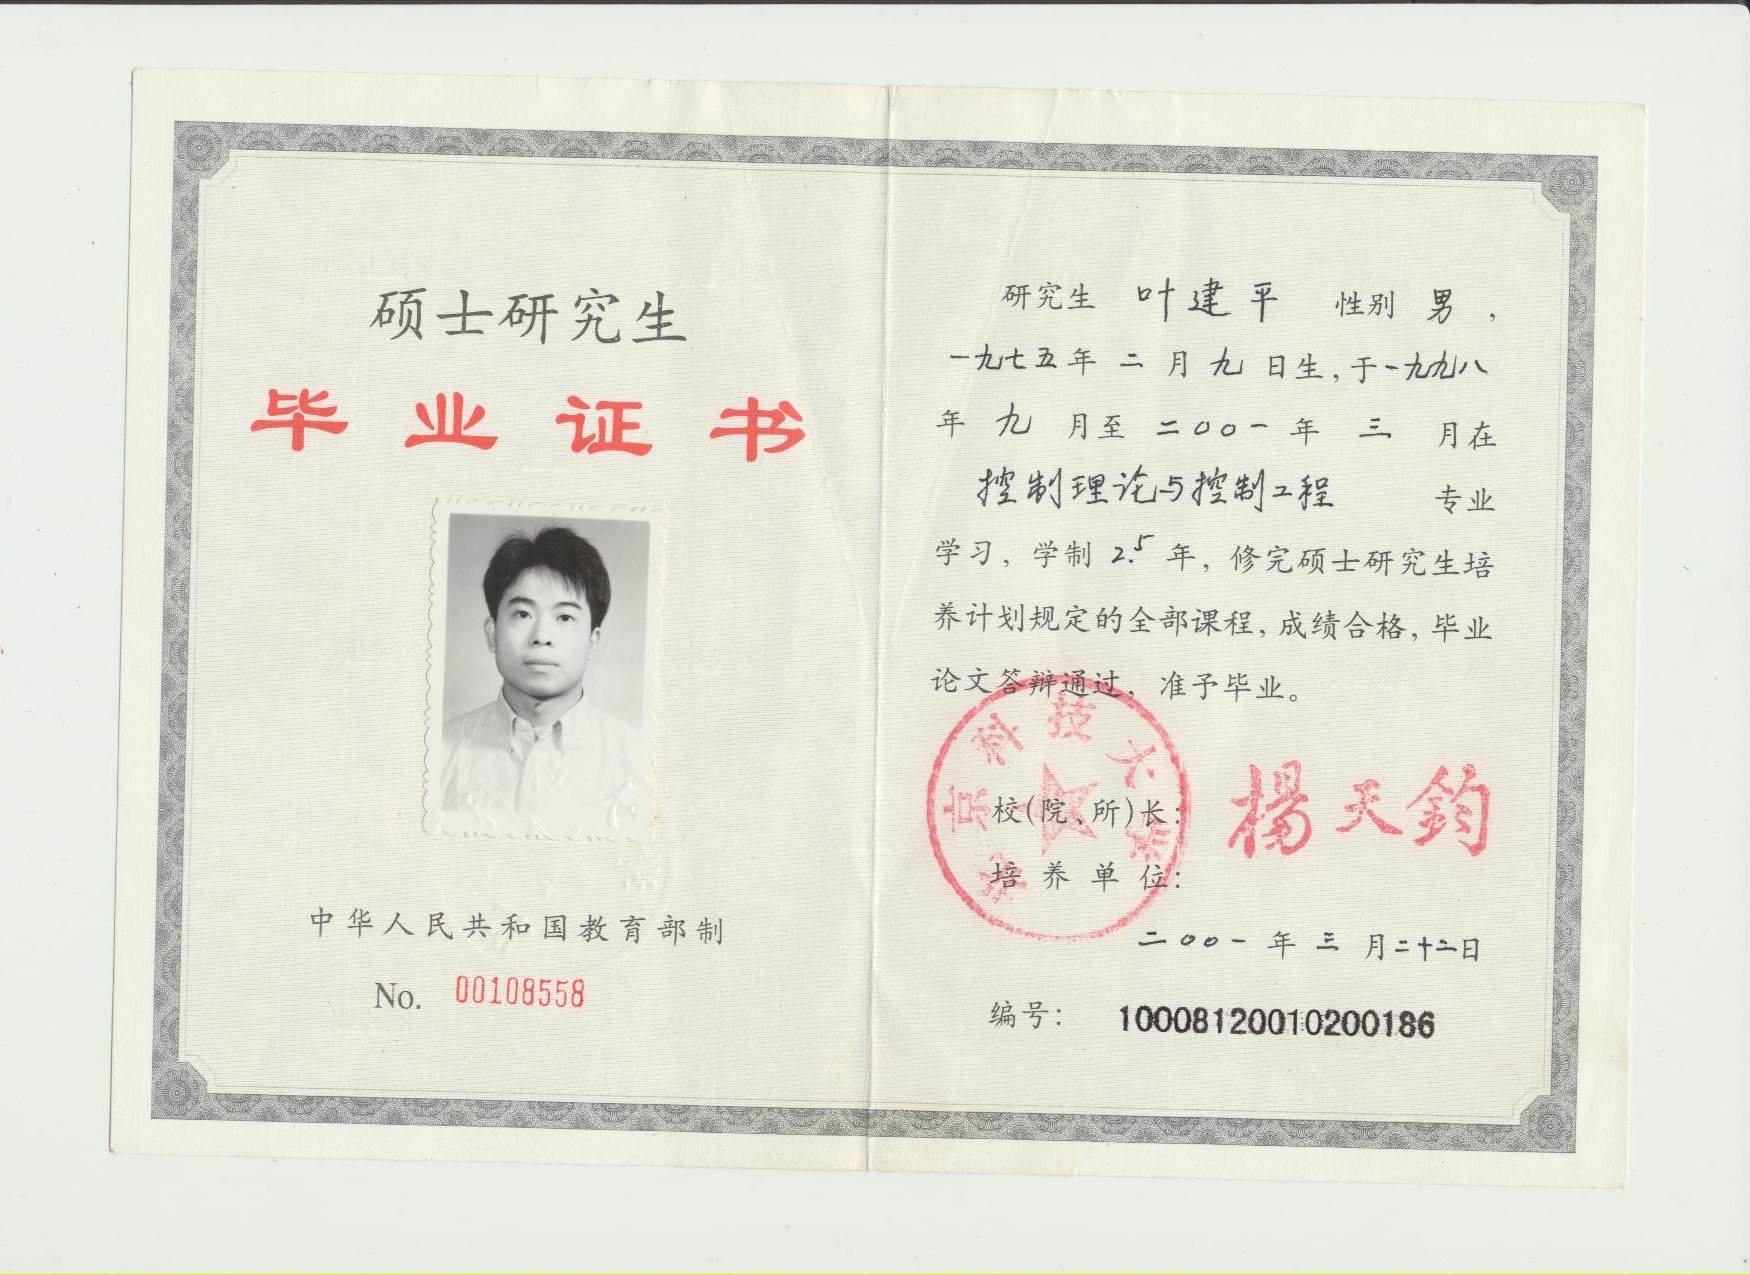 硕士研究生
毕业证书
中华人民共和国教育部制
No. 00108558
研究生 叶建平 性别 男，
一九七五年 二 月 九 日生，于一九九八
年 九 月至 二〇〇一 年 三 月在
控制理论与控制工程 专业
学习，学制 2.5 年，修完硕士研究生培
养计划规定的全部课程，成绩合格，毕业
论文答辩通过，准予毕业。
北京科技大学
校(院、所)长： 楊天鈞
培养单位：
二〇〇一 年 三 月二十二日
编号： 10008120010200186